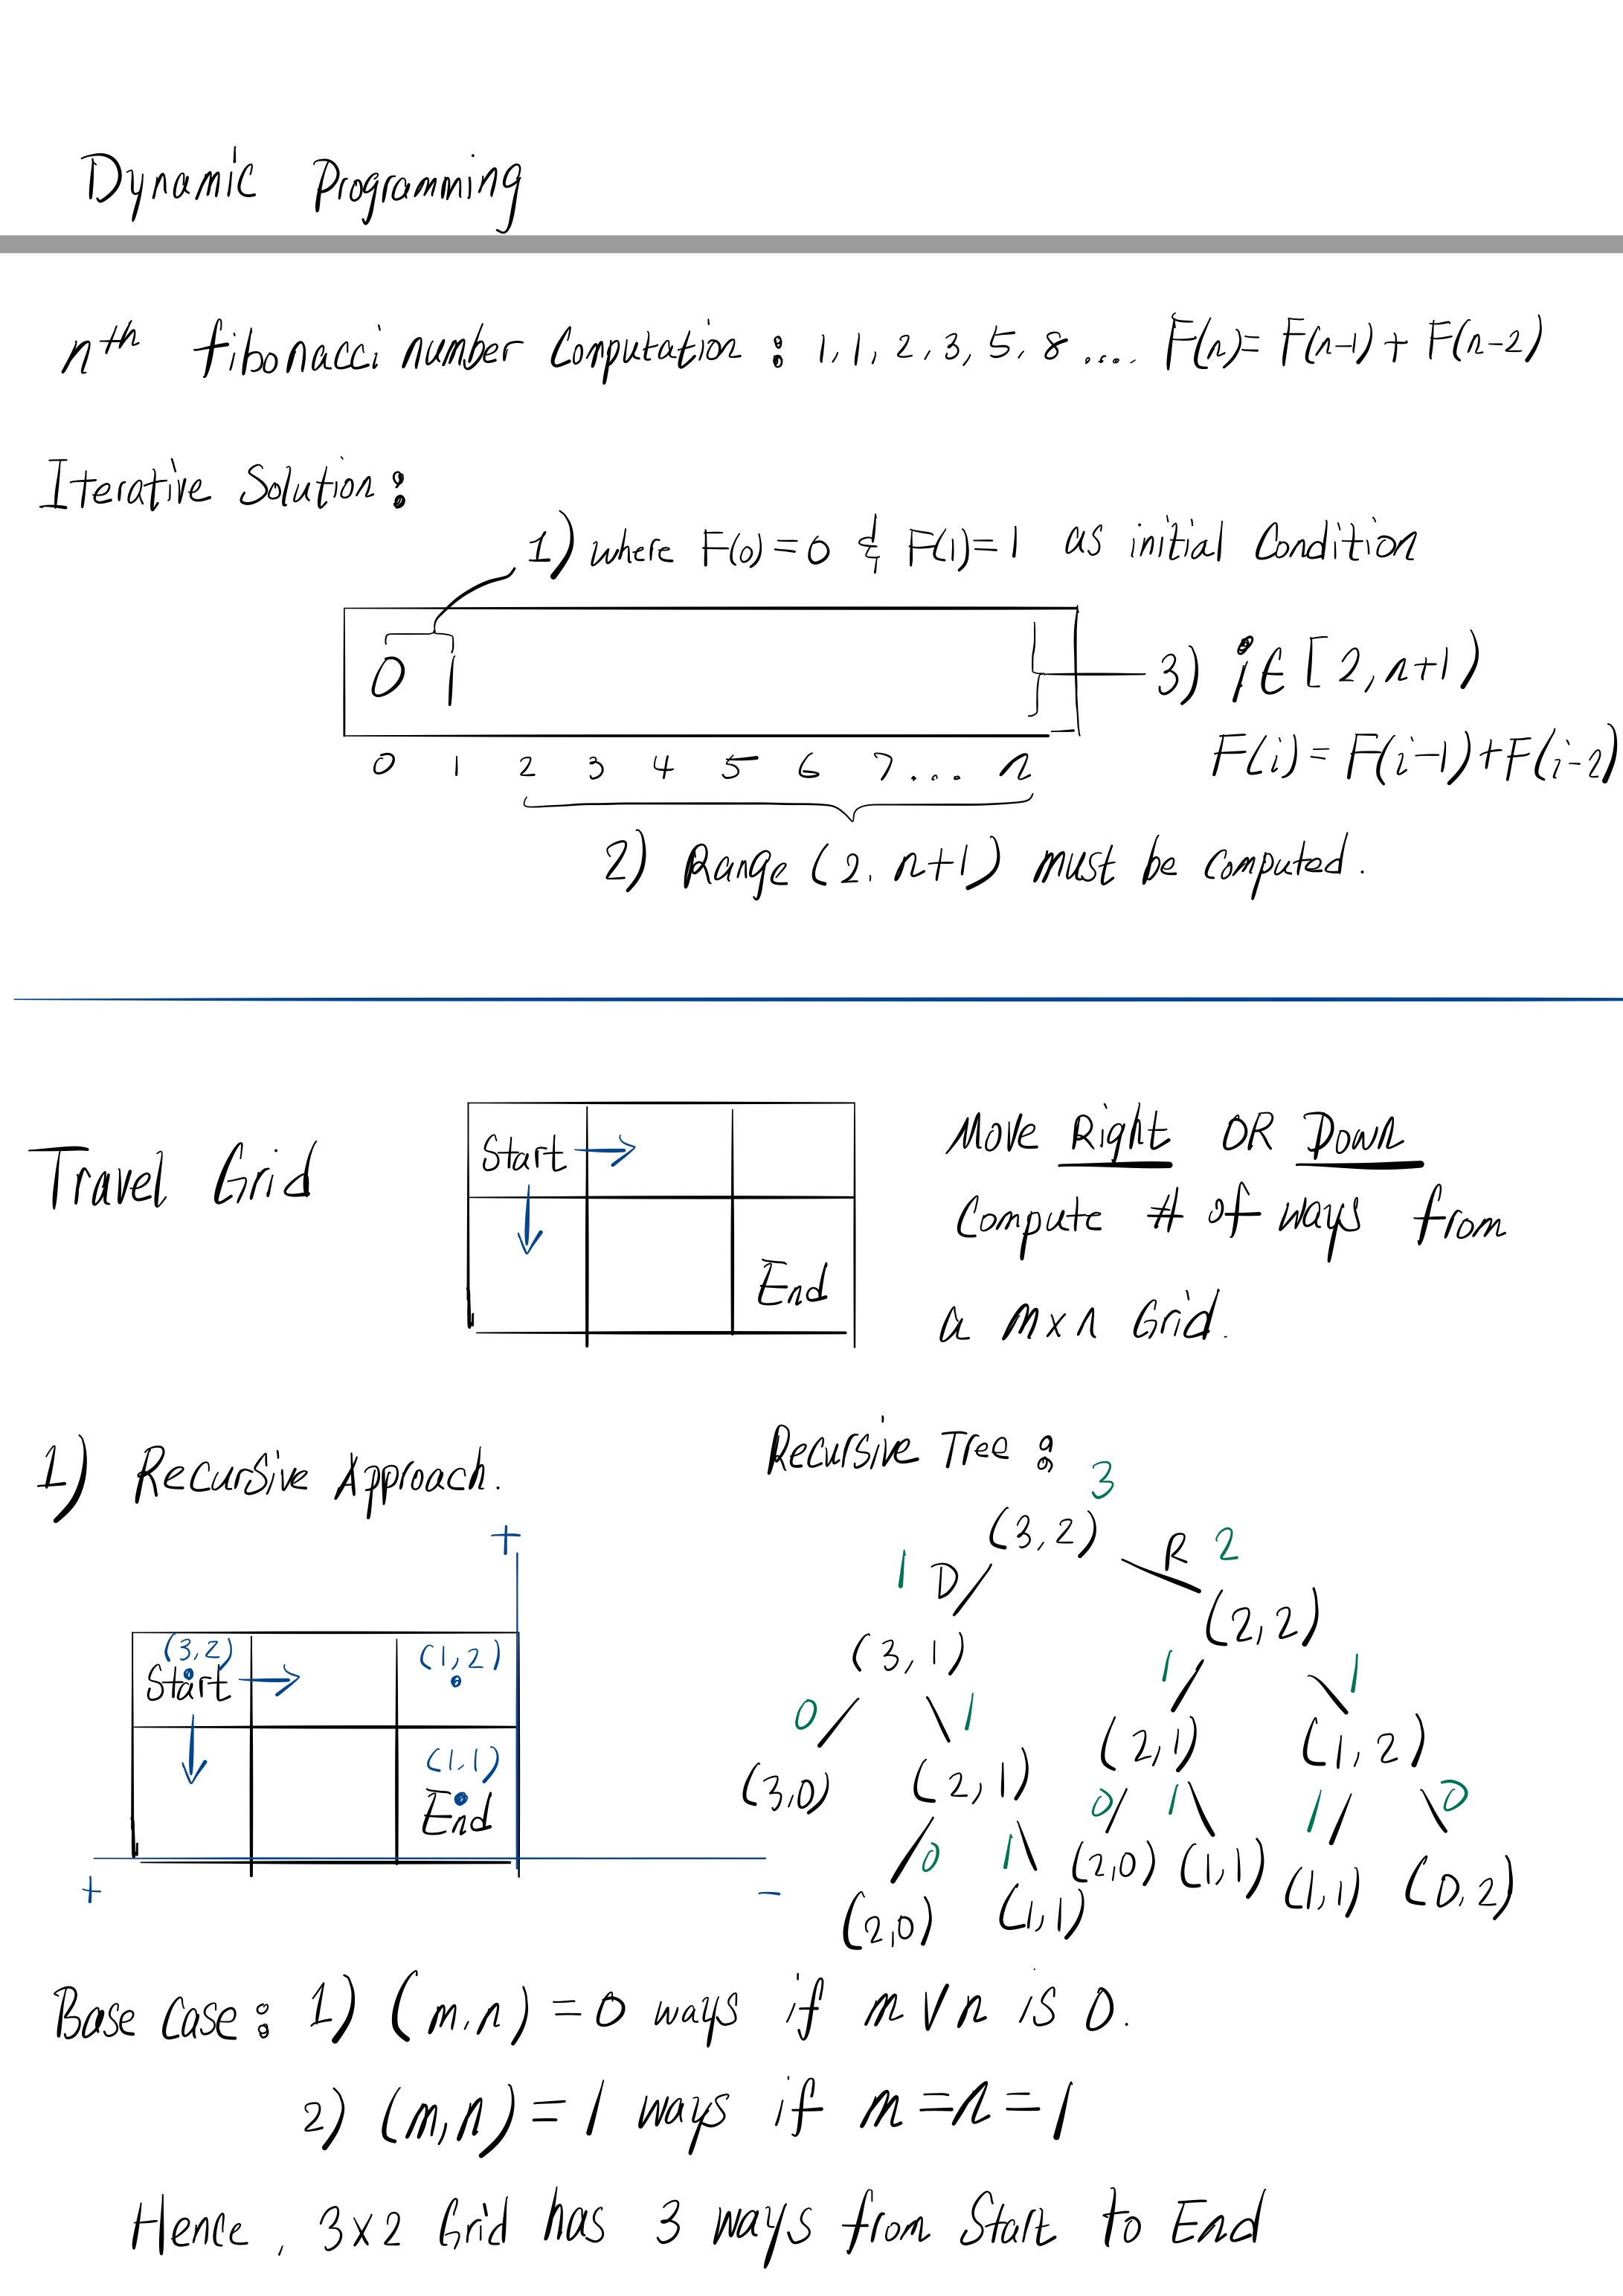 Dynamic Programming
nth fibonacci number Computation : 1, 1, 2, 3, 5, 8 .... F(n)= F(n-1) + F(n-2)
Iterative Solution :
1) where F(0) = 0 & F(1) = 1 as initial Condition
0 1
3) i ∈ [2, n+1)
F(i) = F(i-1) + F(i-2)
0 1 2 3 4 5 6 7 . . . n
2) Range (2, n+1) must be computed.
Travel Grid
Start →
↓
End
Move Right OR Down
Compute # of ways from
a m x n Grid.
1) Recursive Approach.
+
(3,2) (1,2)
Start →
↓
(1,1)
End
+ -
Recursive Tree :
3
(3,2)
1 D R 2
(3,1) (2,2)
0 1 1 1
(3,0) (2,1) (2,1) (1,2)
0 1 0 1 1 0
(2,0) (1,1) (2,0) (1,1) (1,1) (0,2)
Base Case : 1) (m,n) = 0 ways if m ∨ n is 0.
2) (m,n) = 1 ways if m = n = 1
Hence, 3x2 Grid has 3 ways from Start to End